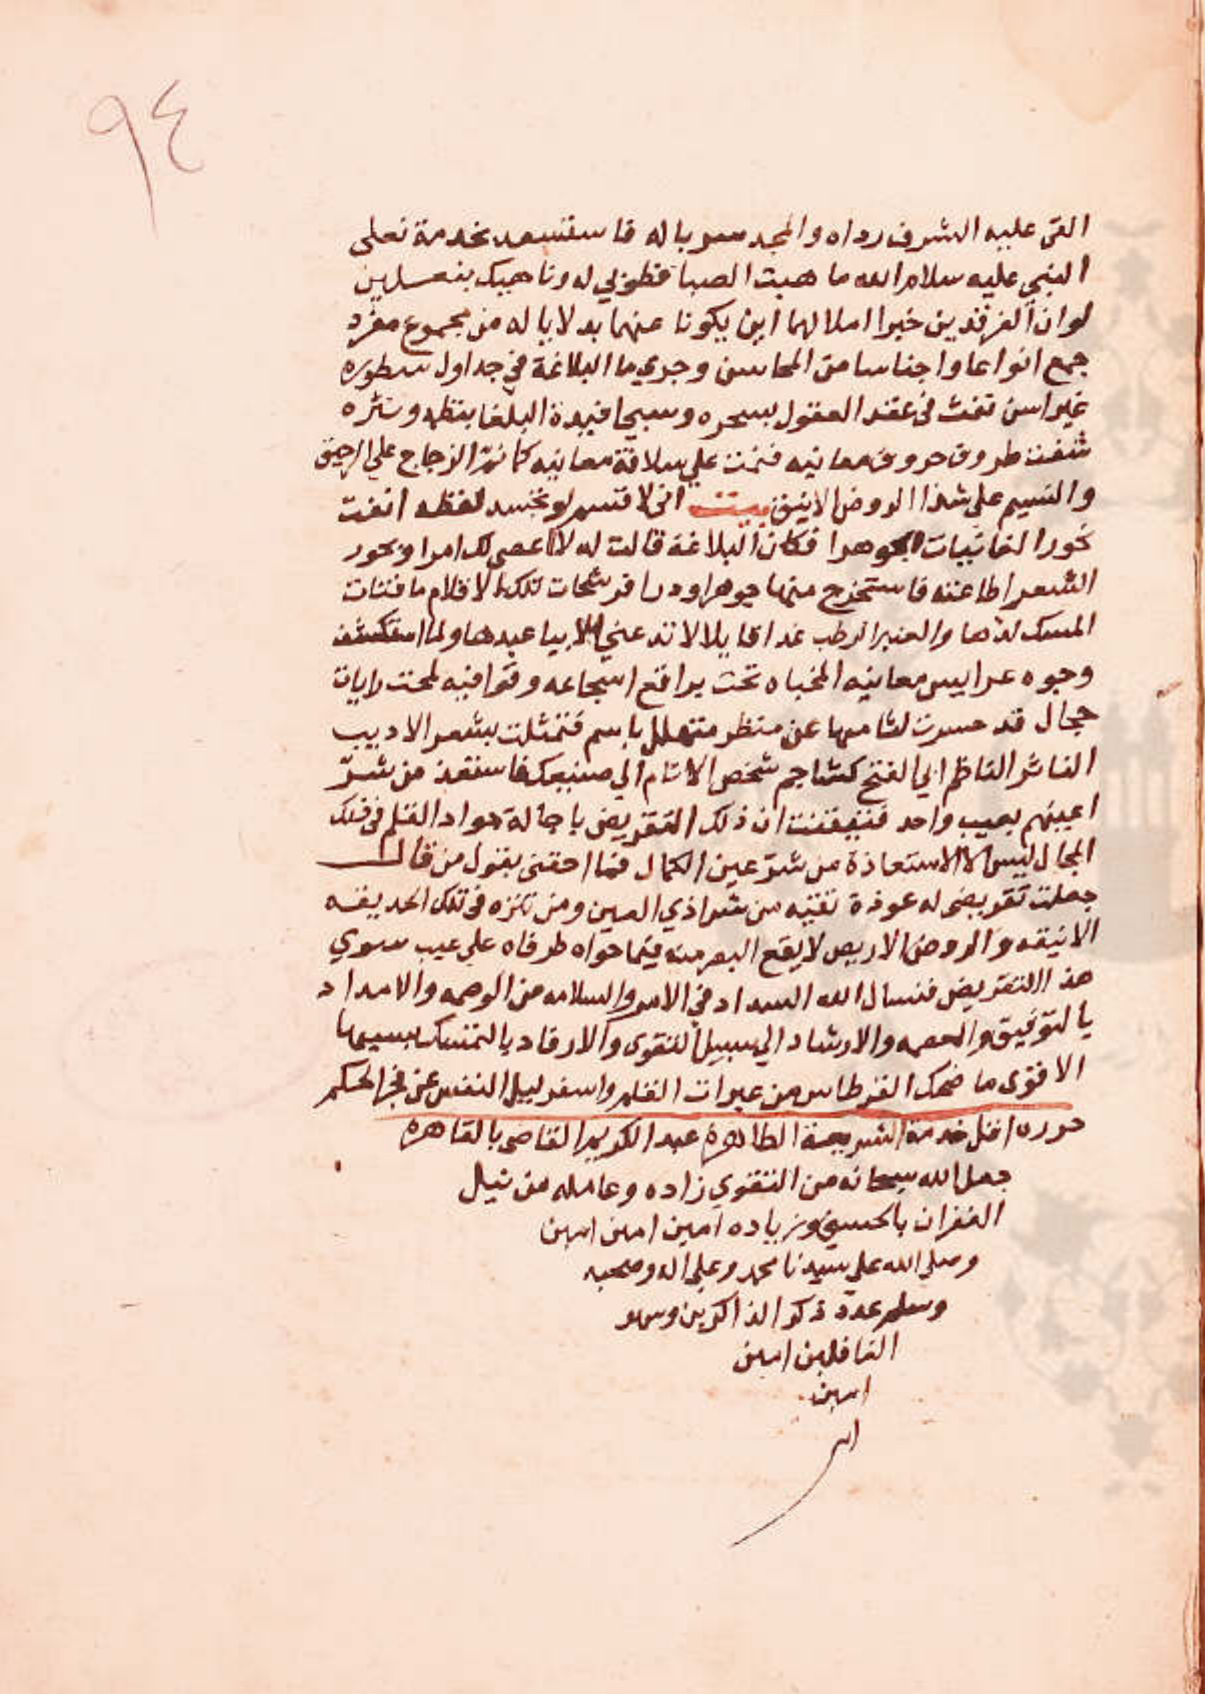 ٩٤
القى عليه الشرف رداه والمجد سرباله فاستسعد بخدمة نعلى
النبي عليه سلام الله ما هبت الصبا فطوبي له وناهيك بنعلين
لوان الفرقدين خيرا املا لهما اين يكونا عنهما بدلا ياله من مجموع مفرد
جمع انواعا واجناسا من المحاسن وجري ما البلاغة في جداول سطوره
غير اسن نفث في عقد العقول بسحره وسبحا فيدة البلغا بنظمه ونثره
شفت ظروف حروف معانيه فنمت علي سلافة معانيه كما نم الزجاج علي الرحيق
والنسيم على شذا الروض الانيق بيت اني لاقسم لو تجسد لفظه انفت
نحور الغانيات الجوهرا فكان البلاغة قالت له لا اعصى لك امرا وبحور
الشعر اطاعته فاستخرج منها جوهرا ودرا فرشحات تلك الاقلام ما فتات
المسك لدها والعنبر الرطب غدا قايلا لا تدعني الا بيا عبدها ولما استكشف
وجوه عرايس معانيه المخباه تحت براقع اسجاعه وقوافيه لمحت رايات
جمال قد حسرت لثامها عن منظر متهلل باسم فتمثلت بشعر الاديب
الناثر الناظم ابي الفتح كشاجم شخص الانام الي صنيعك فاستعذ من شر
اعينهم بعيب واحد فتيقنت ان ذلك التقريض باجالة جواد القلم في ذلك
المجال ليس الا الاستعاذة من شر عين الكمال فما احقني بقول من قال
جعلت تقريضي له عوذة تقيه من شر اذي العين ومن تنزه في تلك الحديقه
الانيقه والروض الاريض لا يقع البصر منه فيما حواه طرفاه علي عيب سوي
هذا التقريض فنسال الله السداد في الامر والسلامه من الوصمه والامداد
بالتوفيق والعصمه والارشاد الي سبيل التقوى والارفاد بالتمسك بسببها
الاقوى ما ضحك القرطاس من عبرات القلم واسفر ليل النفس عن فجر الحكم
حرره اقل خدمة الشريعة الطاهرة عبد الكريم القاضي بالقاهره
جعل الله سبحانه من التقوي زاده وعامله من نيل
الغفران بالحسني وزياده امين امين امين
وصلي الله علي سيدنا محمد وعلي اله وصحبه
وسلم عدد ذكر الذاكرين وسهو
الغافلين امين
امين
امـ